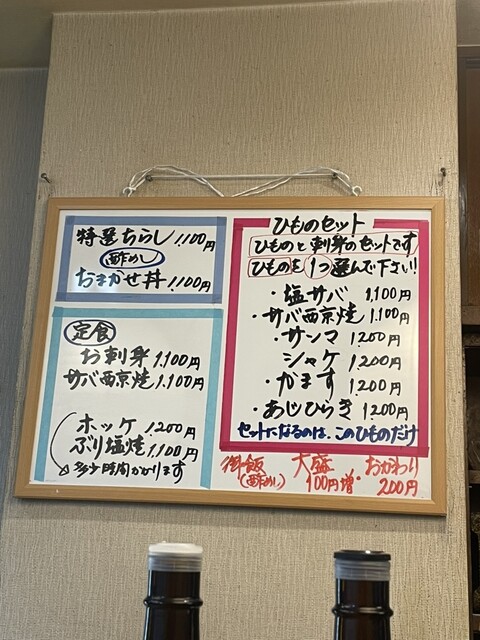 特選ちらし 1,100円
酢めし
おまかせ丼 1,100円
定食
お刺身 1,100円
サバ西京焼 1,100円
ホッケ 1,200円
ぶり塩焼 1,100円
多少時間かかります
ひものセット
ひものと刺身のセットです
ひものを1つ選んで下さい!
・塩サバ 1,100円
・サバ西京焼 1,100円
・サンマ 1,200円
・シャケ 1,200円
・かます 1,200円
・あじひらき 1,200円
セットになるのは、このひものだけ
御飯 大盛 おかわり
(酢めし) 100円増・ 200円